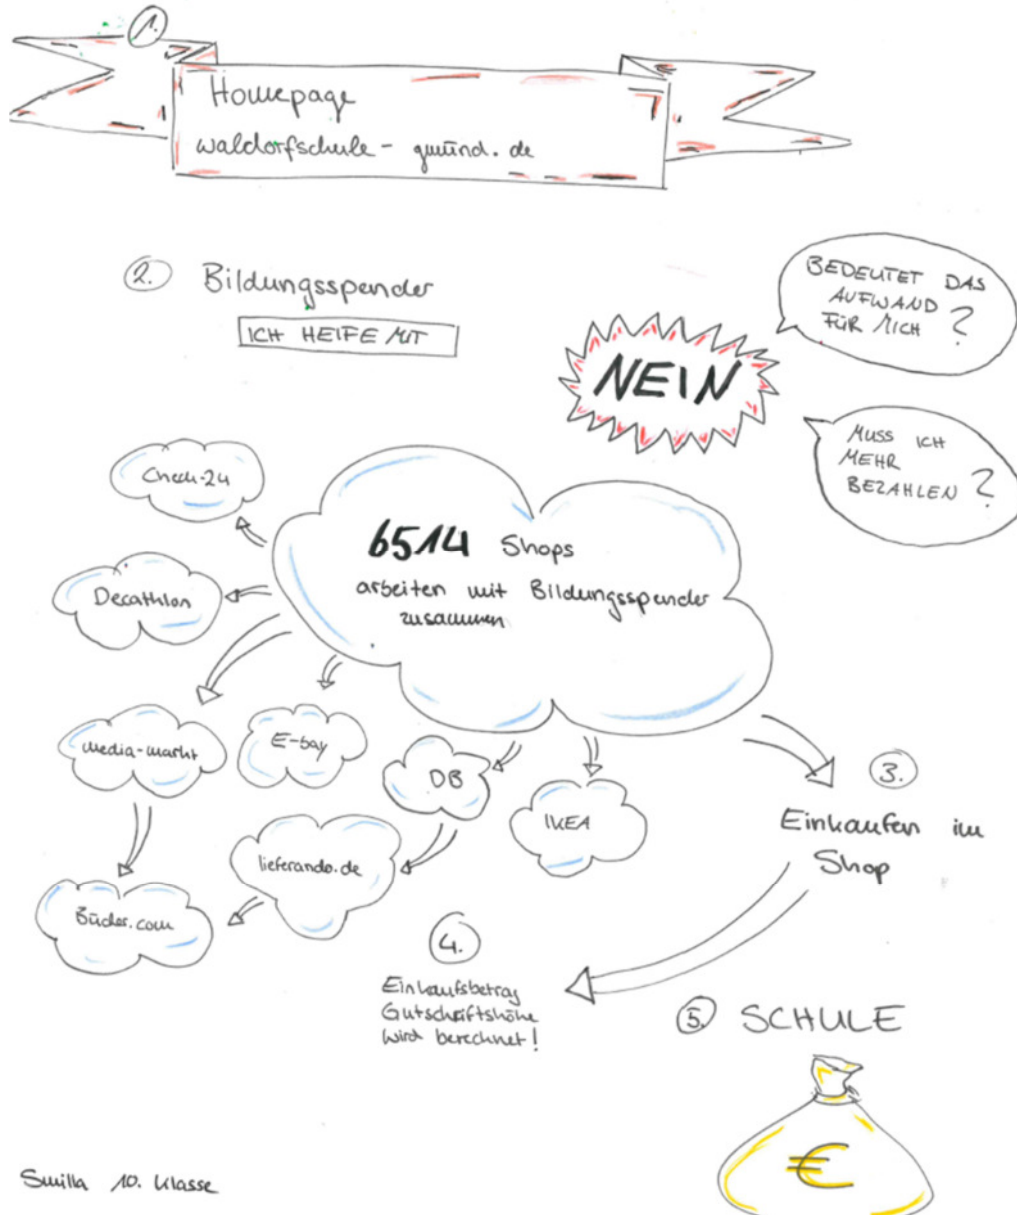 1.
Homepage
waldorfschule-gmünd.de
2. Bildungsspender
ICH HElFE MIT
BEDEUTET DAS
AUFWAND
FÜR MICH ?
NEIN
MUSS ICH
MEHR
BEZAHLEN ?
6514 Shops
arbeiten mit Bildungsspender
zusammen
Check-24
Decathlon
media-markt
E-bay
DB
IKEA
lieferando.de
Bücher.com
3.
Einkaufen im
Shop
4.
Einkaufsbetrag
Gutschriftshöhe
wird berechnet!
5. SCHULE
€
Smilla 10. Klasse